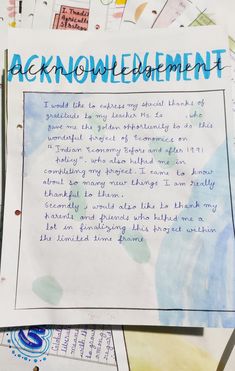 Acknowledgement
ACKNOWLEDGEMENT
acknowledgement
I would like to express my special thanks of
gratitude to my teacher Ms. Is , who
gave me the golden opportunity to do this
wonderful project of Economics on
"Indian Economy Before and after 1991
policy". who also helped me in
completing my project. I came to know
about so many new things I am really
thankful to them.
Secondly, I would also like to thank my
parents and friends who helped me a
lot in finalizing this project within
the limited time frame